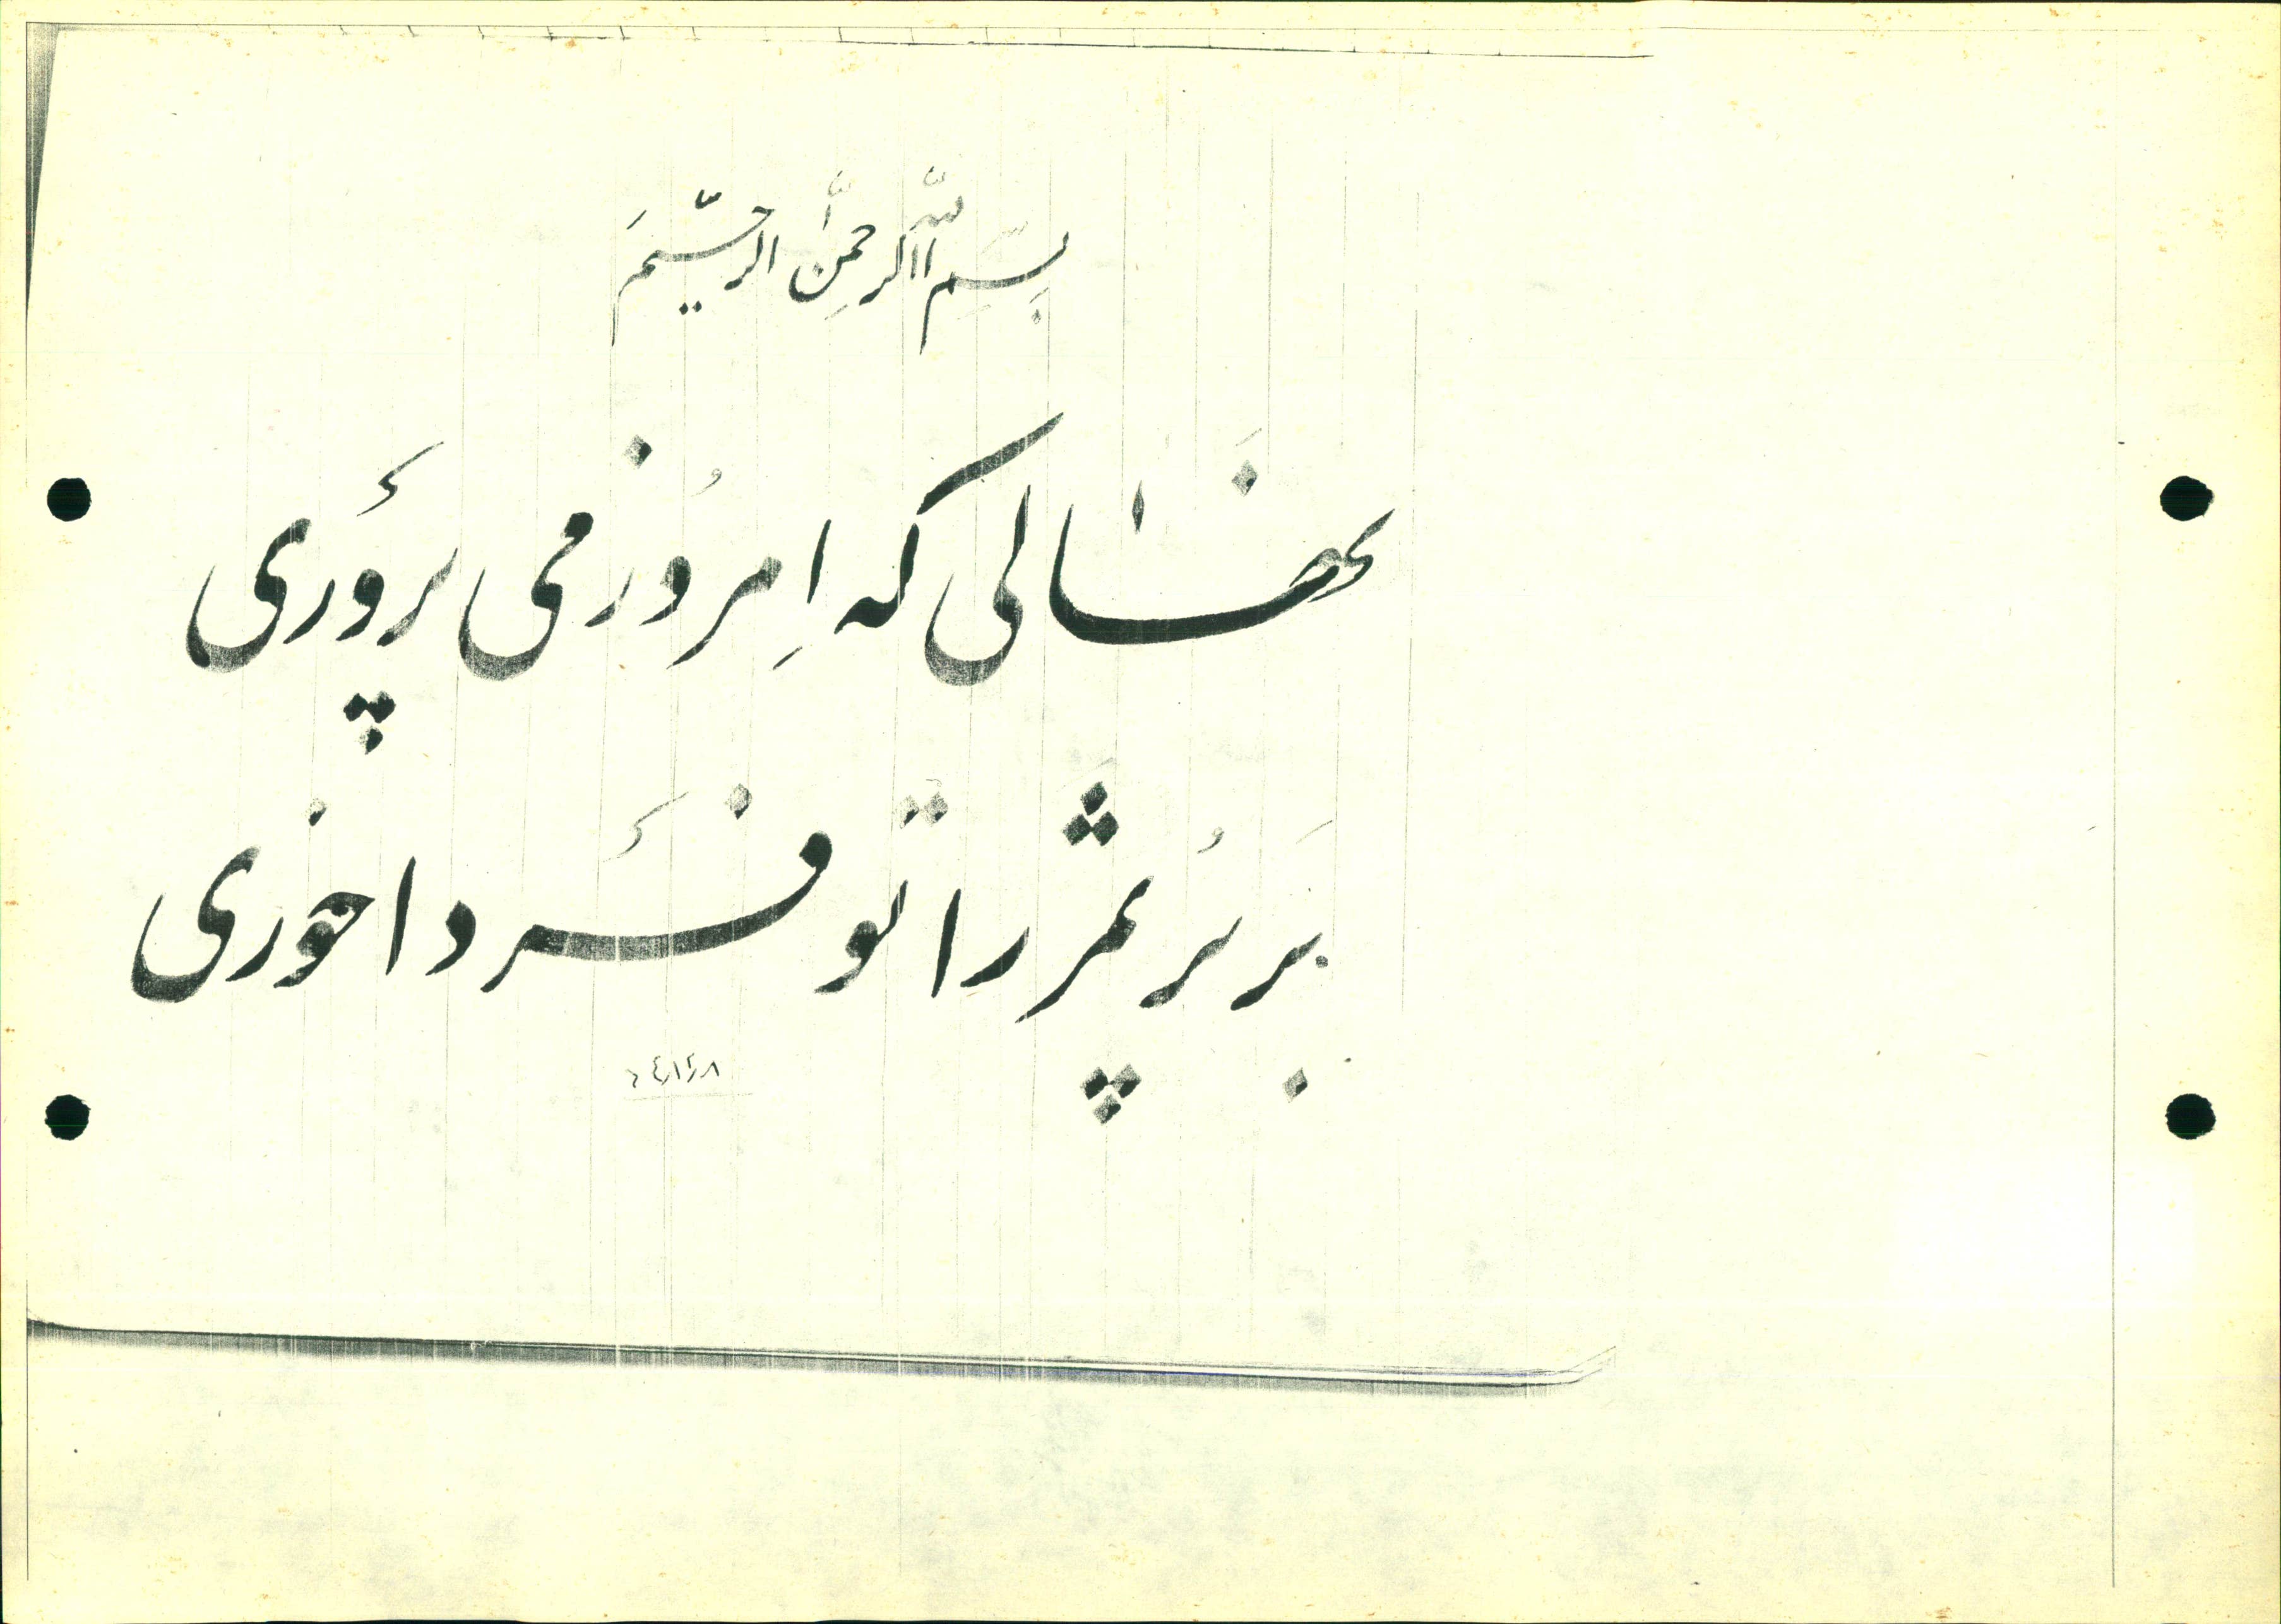 بِسْمِ اللّهِ الرَّحمنِ الرَّحیمَ
نَهالی که اِمرُوز می پَروَری
بَر پُر ثمر را تو فَردا خوری